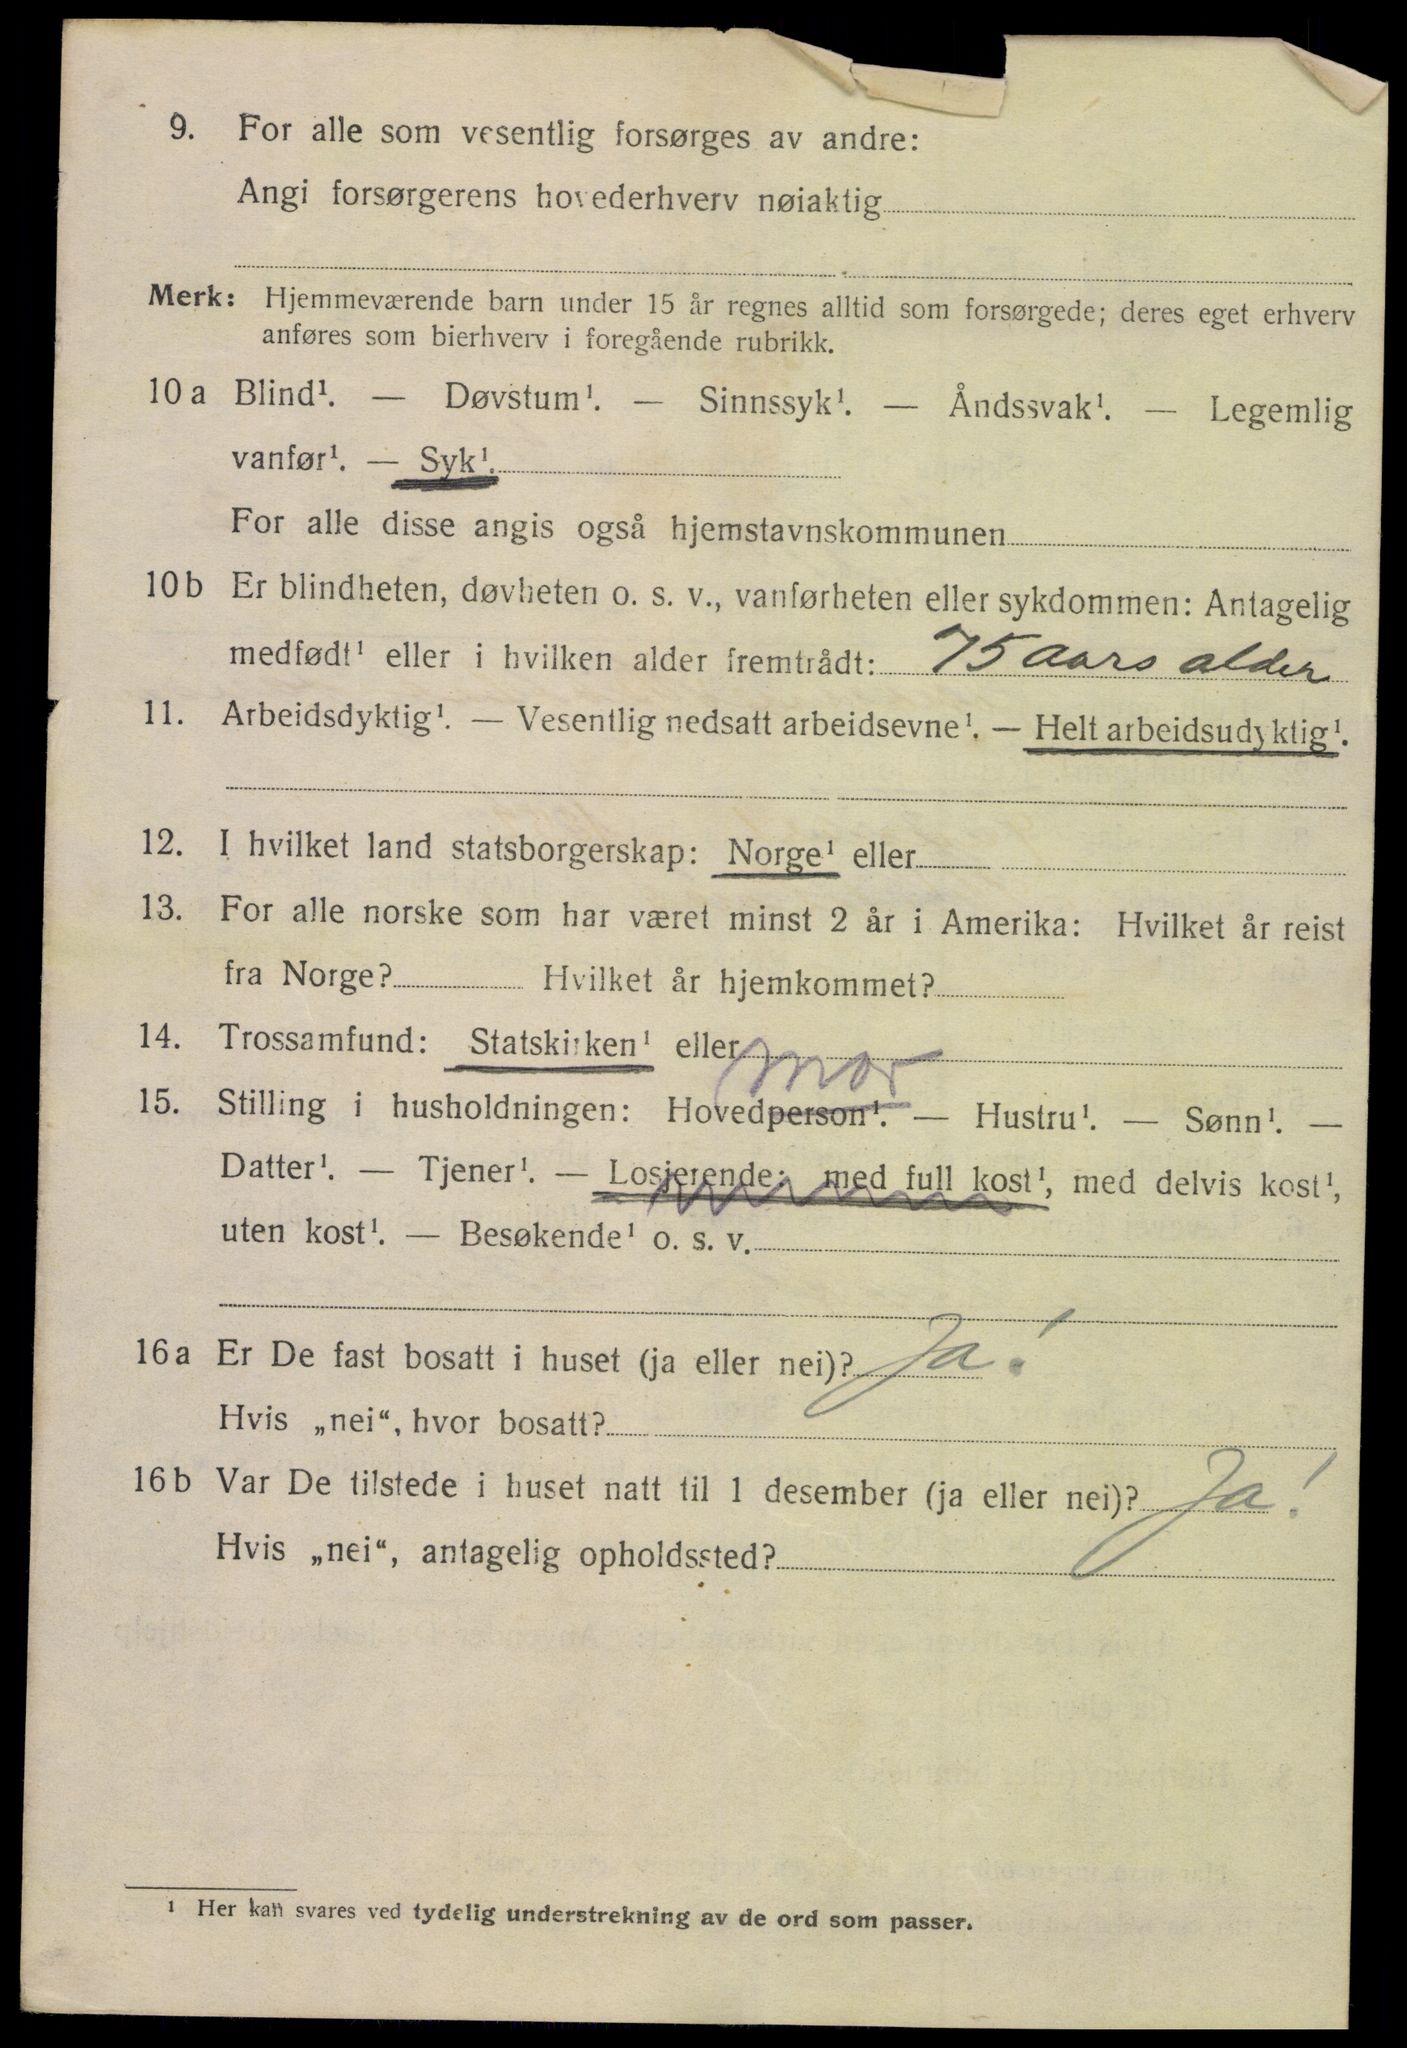 9. For alle som vesentlig forsørges av andre:
Angi forsørgerens hovederhverv nøiaktig
Merk: Hjemmeværende barn under 15 år regnes alltid som forsørgede; deres eget erhverv
anføres som bierhverv i foregående rubrikk.
10 a Blind¹. — Døvstum¹. — Sinnssyk¹. — Åndssvak¹. — Legemlig
vanfør¹. — Syk¹.
For alle disse angis også hjemstavnskommunen
10 b Er blindheten, døvheten o. s. v., vanførheten eller sykdommen: Antagelig
medfødt¹ eller i hvilken alder fremtrådt: 75 aars alder
11. Arbeidsdyktig¹. — Vesentlig nedsatt arbeidsevne¹. — Helt arbeidsudyktig¹.
12. I hvilket land statsborgerskap: Norge¹ eller
13. For alle norske som har været minst 2 år i Amerika: Hvilket år reist
fra Norge? Hvilket år hjemkommet?
14. Trossamfund: Statskirken¹ eller
mor
15. Stilling i husholdningen: Hovedperson¹. — Hustru¹. — Sønn¹. —
Datter¹. — Tjener¹. — Losjerende: med full kost¹, med delvis kost¹,
uten kost¹. — Besøkende¹ o. s. v.
16 a Er De fast bosatt i huset (ja eller nei)? Ja!
Hvis „nei“, hvor bosatt?
16 b Var De tilstede i huset natt til 1 desember (ja eller nei)? Ja!
Hvis „nei“, antagelig opholdssted?
¹ Her kan svares ved tydelig understrekning av de ord som passer.